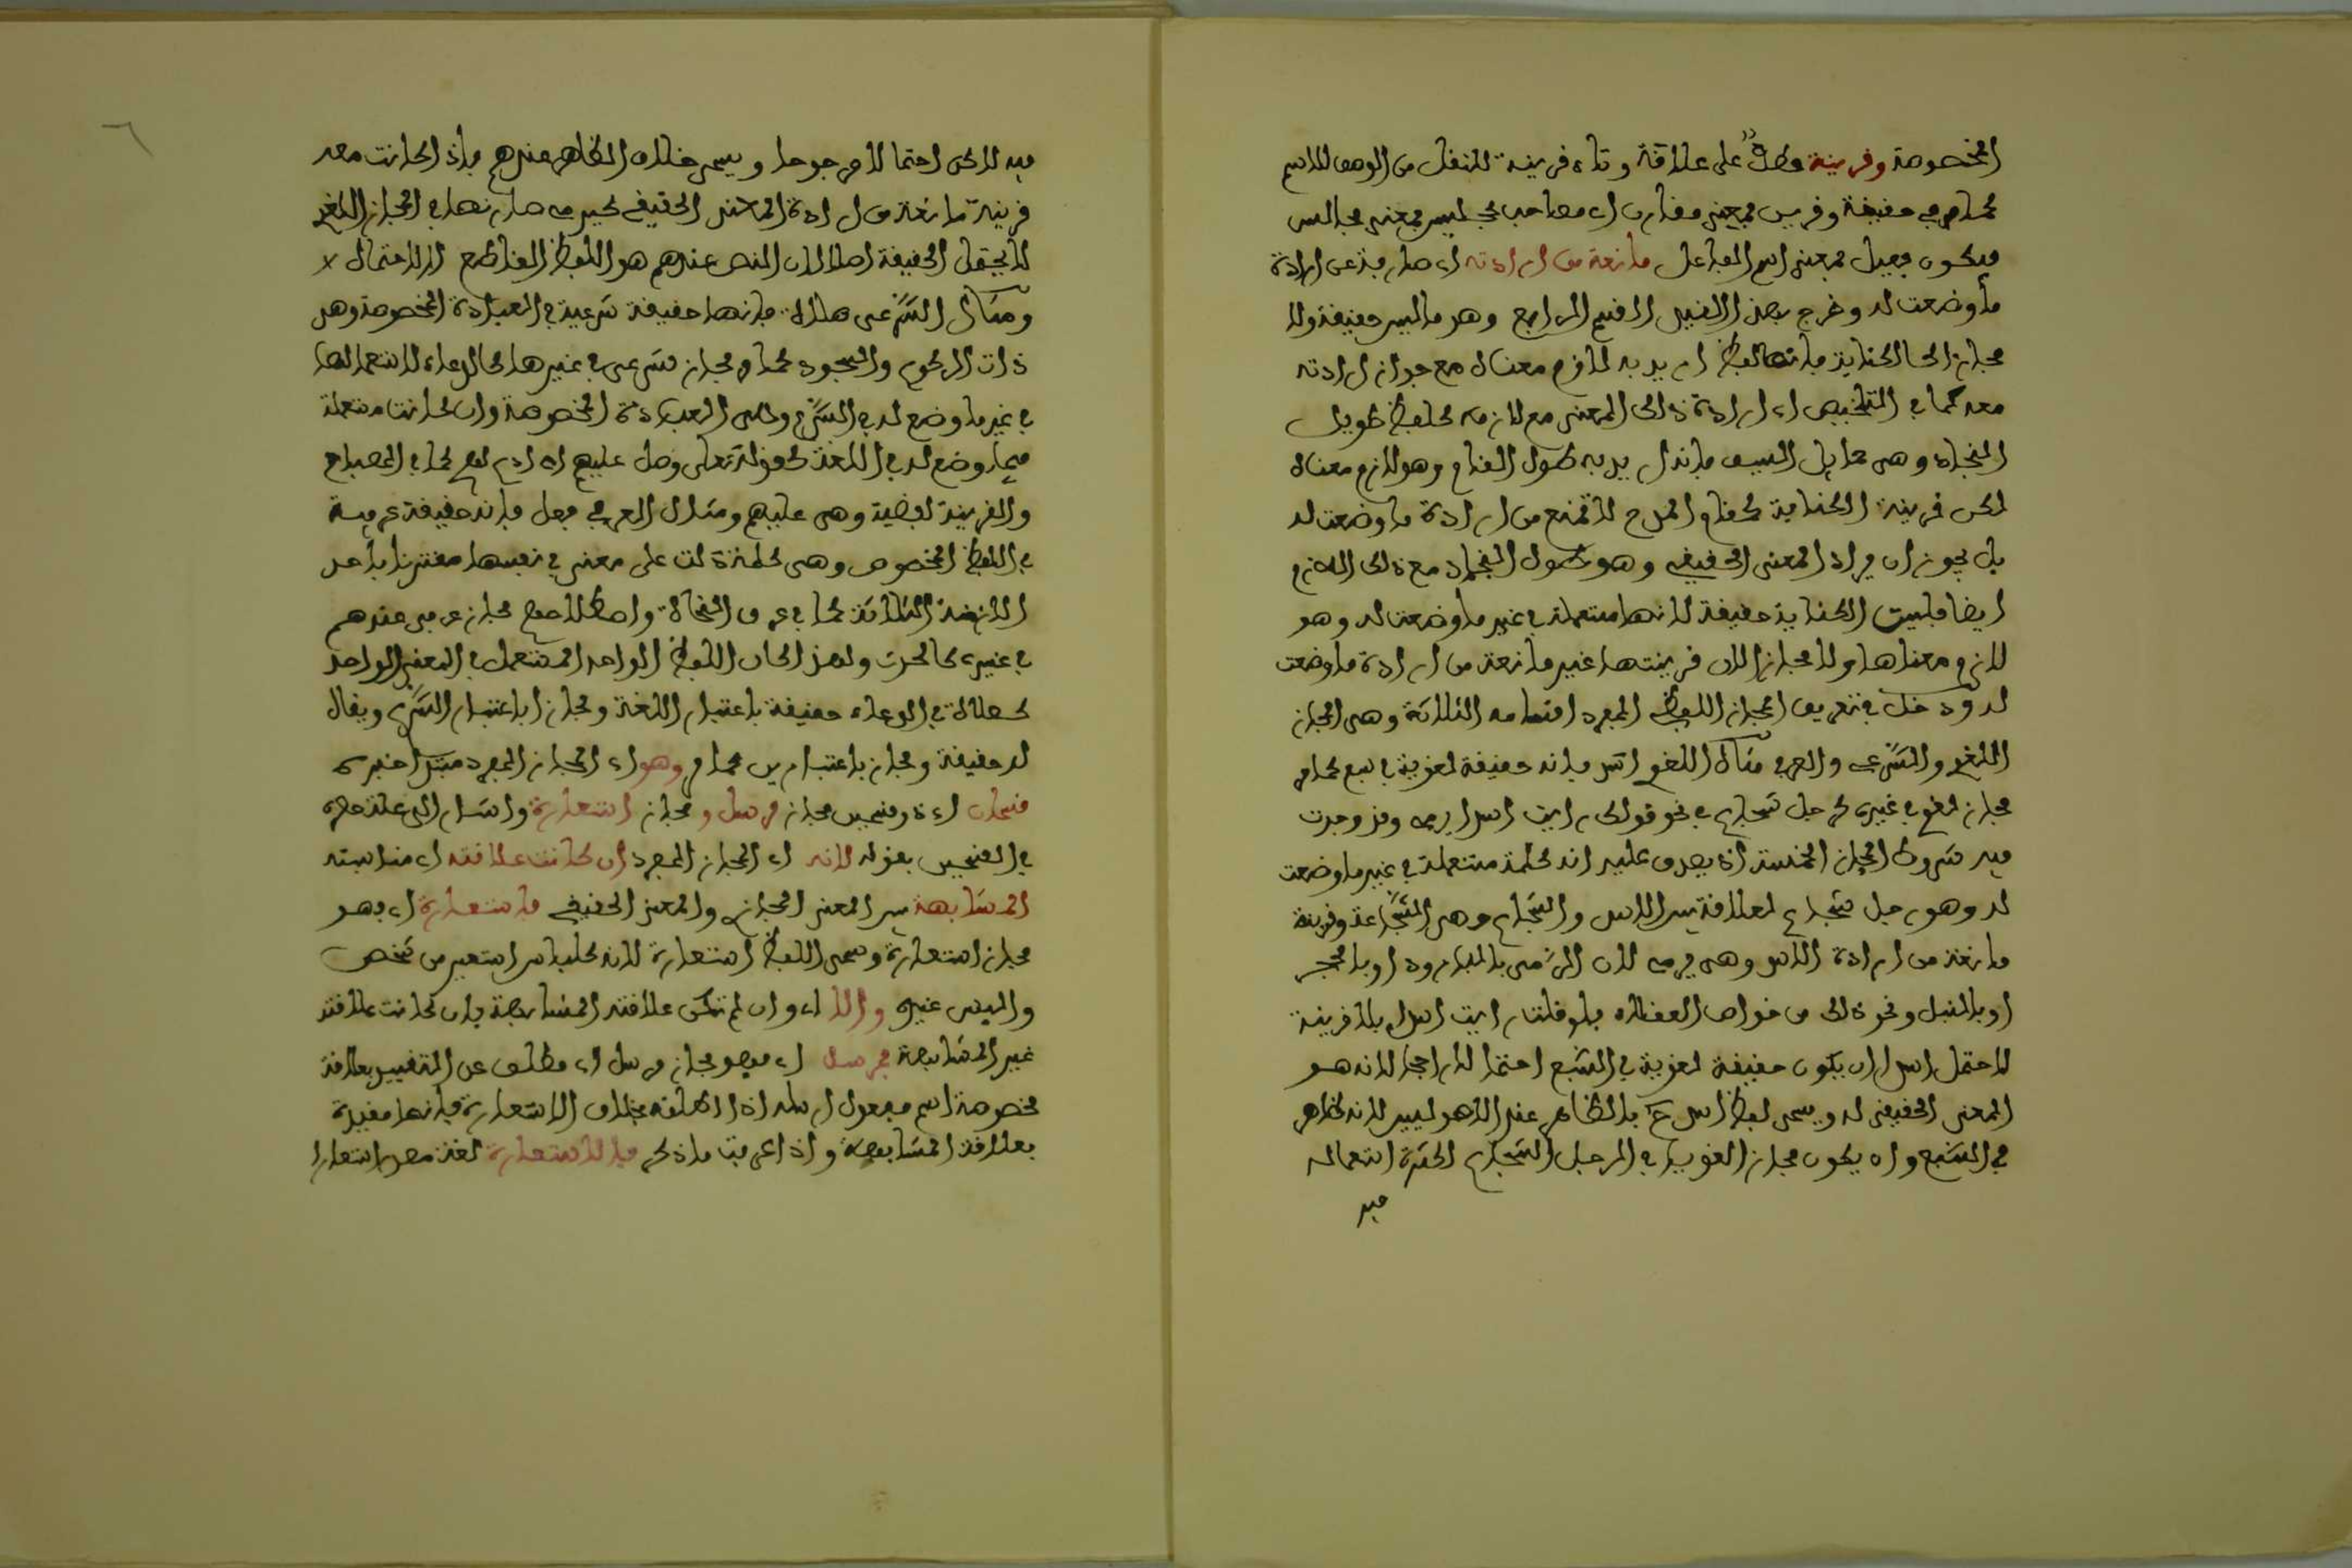 المخصوصة وقرينة عطف على علاقة وتاء قرينة للنقل من الوصف للاسم
كما مر في حقيقة وقرين بمعنى مقارن اي مصاحب كجليس بمعنى مجالس
فيكون فعيل بمعنى اسم الفاعل مانعة من ارادته اي صارفة عن ارادة
ما وضعت له وخرج بهذا القيد القسم الرابع وهو ما ليس حقيقة ولا
مجازا كالكناية فانها لفظ اريد به لازم معناه مع جواز ارادته
معه كما في التلخيص اي ارادة ذلك المعنى مع لازمه كلفظ طويل
النجاد وهي حمايل السيف فانه اريد به طول القامة وهو لازم معناه
لكن قرينة الكناية كمقام المدح لا تمنع من ارادة ما وضعت له
بل يجوز ان يراد المعنى الحقيقي وهو طول النجاد مع ذلك اللازم
ايضا فليست الكناية حقيقة لانها مستعملة في غير ما وضعت له وهو
لازم معناها ولا مجازا لان قرينتها غير مانعة من ارادة ما وضعت
له ودخل في تعريف المجاز اللفظي المفرد اقسامه الثلاثة وهي المجاز
اللغوي والشرعي والعرفي مثال اللغوي اسد فانه حقيقة لغوية في سبع كما مر
مجاز لغوي في غيره كرجل شجاع في نحو قولك رايت اسدا يرمي وقد وجدت
فيه شروط المجاز الخمسة اذ يصدق عليه انه كلمة مستعملة في غير ما وضعت
له وهو رجل شجاع لعلاقة بين الاسد والشجاع وهي الشجاعة وقرينة
مانعة من ارادة الاسد وهي يرمي لان الرمي بالبارود او بالحجر
او بالنبل ونحو ذلك من خواص العقلاء فلو قلت رايت اسدا بلا قرينة
لاحتمل اسدا ان يكون حقيقة لغوية في السبع احتمالا راجحا لانه هو
المعنى الحقيقي له ويسمى لفظ اسد ح بالظاهر عند الاصوليين لانه ظاهر
في السبع وان يكون مجازا لغويا في الرجل الشجاع لكثرة استعماله
فيه
فيه لاكن احتمالا مرجوحا ويسمى هناك الظاهر عندهم فاذا كانت معه
قرينة مانعة من ارادة المعنى الحقيقي كيرمي صار نصا في المجاز اللغوي
لا يحتمل الحقيقة اصلا لان النص عندهم هو اللفظ القاطع للاحتمال
ومثال الشرعي صلاة فانها حقيقة شرعية في العبادة المخصوصة وهي
ذات الركوع والسجود كما مر مجاز شرعي في غيرها كالدعاء لاستعمالها
في غير ما وضع له في الشرع وهي العبادة المخصوصة وان كانت مستعملة
فيما وضع له في اللغة كقوله تعالى وصل عليهم اي ادع لهم كما في المصباح
والقرينة لفظية وهي عليهم ومثال العرفي فعل فانه حقيقة عرفية
في اللفظ المخصوص وهي كلمة دلت على معنى في نفسها مقترنا باحد
الازمنة الثلاثة كما في عرف النحاة واصطلاحهم مجاز عرفي عندهم
في غيره كالحدث ولهذا كان اللفظ الواحد المستعمل في المعنى الواحد
كصلاة في الدعاء حقيقة باعتبار اللغة ومجازا باعتبار الشرع ويقال
له حقيقة ومجاز باعتبارين كما مر وهو اي المجاز المفرد مبتدا خبره
قسمان اي ذو قسمين مجاز مرسل ومجاز استعارة واشار الى علة حصره
في القسمين بقوله لانه اي المجاز المفرد ان كانت علاقته اي مناسبته
المشابهة بين المعنى المجازي والمعنى الحقيقي فاستعارة اي فهو
مجاز استعارة وسمي اللفظ استعارة لانه كلباس استعير من شخص
والبس غيره والا اي وان لم تكن علاقته المشابهة بان كانت علاقته
غير المشابهة فمرسل اي فهو مجاز مرسل اي مطلق عن التقييد بعلاقة
مخصوصة اسم مفعول ارسله اذا اطلقه بخلاف الاستعارة فانها مقيدة
بعلاقة المشابهة واذا عرفت ما ذكر فالاستعارة لغة مصدر استعارا